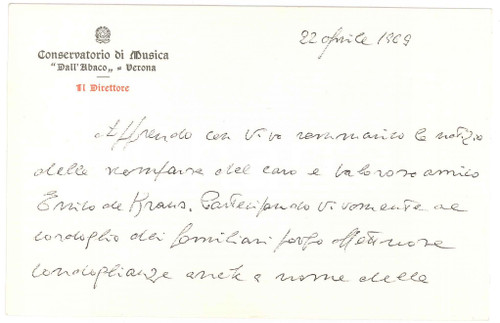 22 aprile 1969
Conservatorio di Musica
"Dall'Abaco" - Verona
Il Direttore
Apprendo con vivo rammarico la notizia
della scomparsa del caro e valoroso amico
Enrico de Kraus. Partecipando vivamente al
cordoglio dei familiari porgo affettuose
condoglianze anche a nome della